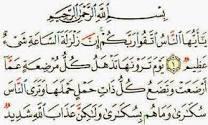 بِسْمِ اللَّهِ الرَّحْمَٰنِ الرَّحِيمِ
يَا أَيُّهَا النَّاسُ اتَّقُوا رَبَّكُمْ إِنَّ زَلْزَلَةَ السَّاعَةِ شَيْءٌ
عَظِيمٌ ۝١ يَوْمَ تَرَوْنَهَا تَذْهَلُ كُلُّ مُرْضِعَةٍ عَمَّا
أَرْضَعَتْ وَتَضَعُ كُلُّ ذَاتِ حَمْلٍ حَمْلَهَا وَتَرَى النَّاسَ
سُكَارَىٰ وَمَا هُم بِسُكَارَىٰ وَلَٰكِنَّ عَذَابَ اللَّهِ شَدِيدٌ